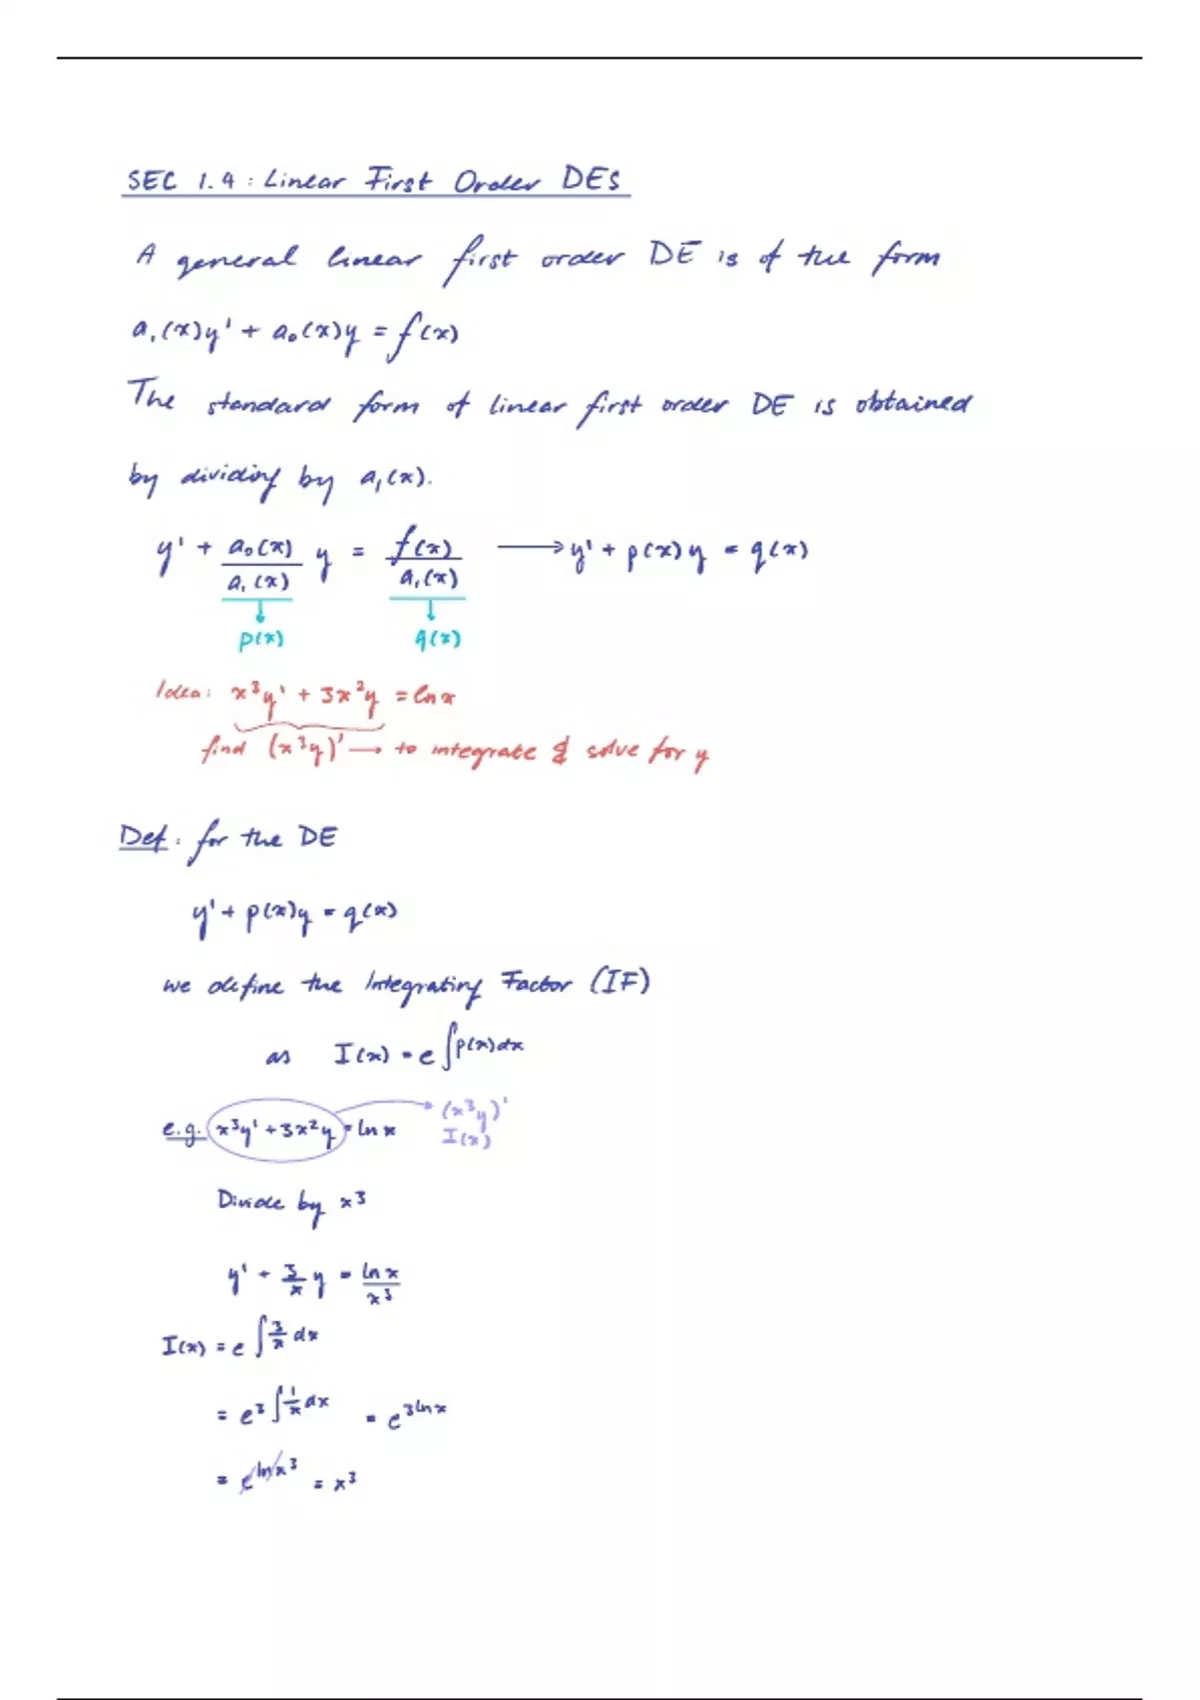 SEC 1.4: Linear First Order DEs
A general linear first order DE is of the form
a₁(x)y' + a₀(x)y = f(x)
The standard form of linear first order DE is obtained
by dividing by a₁(x).
y' + a₀(x)/a₁(x) y = f(x)/a₁(x) → y' + p(x)y = q(x)
↓ ↓
p(x) q(x)
Idea: x³y' + 3x²y = ln x
find (x³y)' → to integrate & solve for y
Def: for the DE
y' + p(x)y = q(x)
we define the Integrating Factor (IF)
as I(x) = e^∫p(x)dx
e.g. x³y' + 3x²y = ln x → (x³y)'
I(x)
Divide by x³
y' + 3/x y = ln x/x³
I(x) = e^∫3/x dx
= e^3∫1/x dx = e^3 ln x
= e^ln x³ = x³